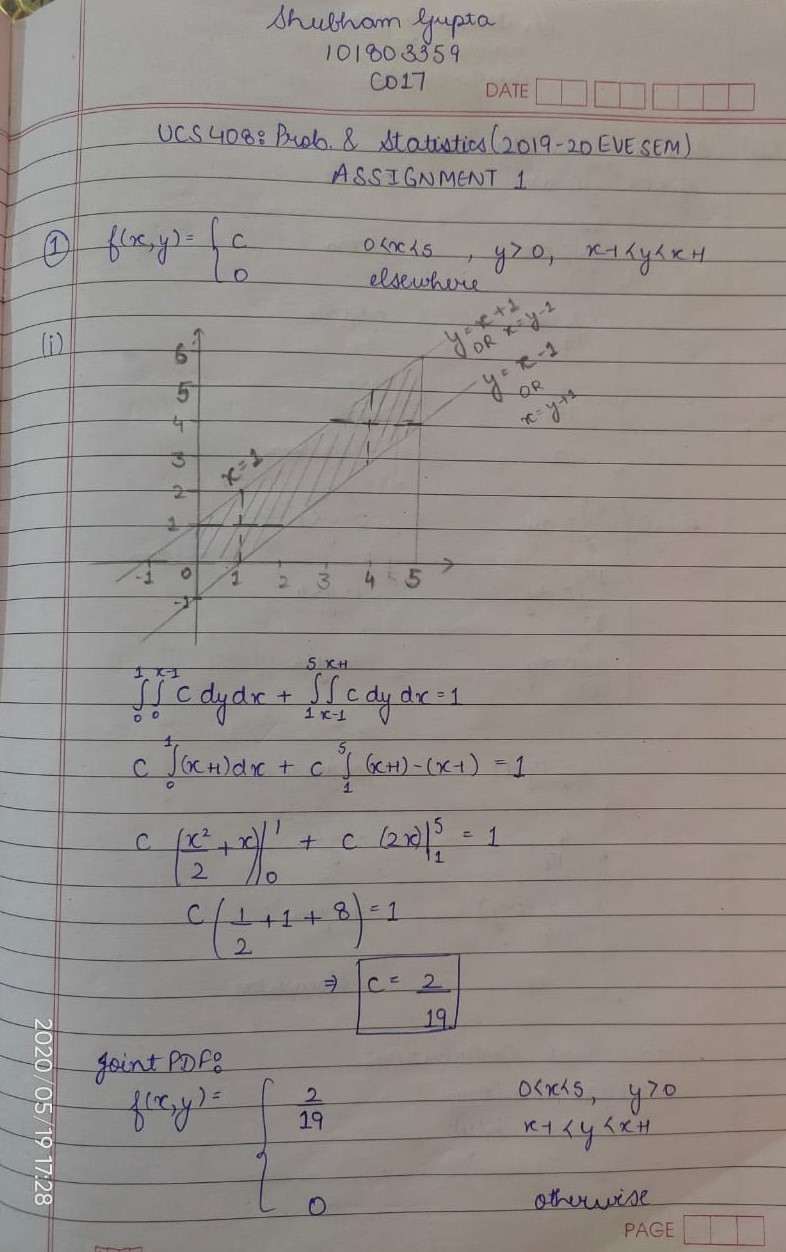 Shubham Gupta
101803359
CO17
DATE
UCS408: Prob. & Statistics (2019-20 EVESEM)
ASSIGNMENT 1
① f(x,y) = { c 0<x<5 , y>0, x-1<y<x+1
0 elsewhere
(i)
y = x+1
OR x=y-1
y = x-1
OR
x=y+1
x=1
6
5
4
3
2
1
-1 0 1 2 3 4 5
-1
∫₀¹ ∫₀ˣ⁻¹ c dy dx + ∫₁⁵ ∫ₓ₋₁ˣ⁺¹ c dy dx = 1
c ∫₀¹ (x+1)dx + c ∫₁⁵ (x+1)-(x-1) = 1
c (x²/2 + x)|₀¹ + c (2x)|₁⁵ = 1
c (1/2 + 1 + 8) = 1
⇒ c = 2/19
Joint PDF:
f(x,y) = { 2/19 0<x<5, y>0
x-1<y<x+1
0 otherwise
PAGE
2020/05/19 17:28